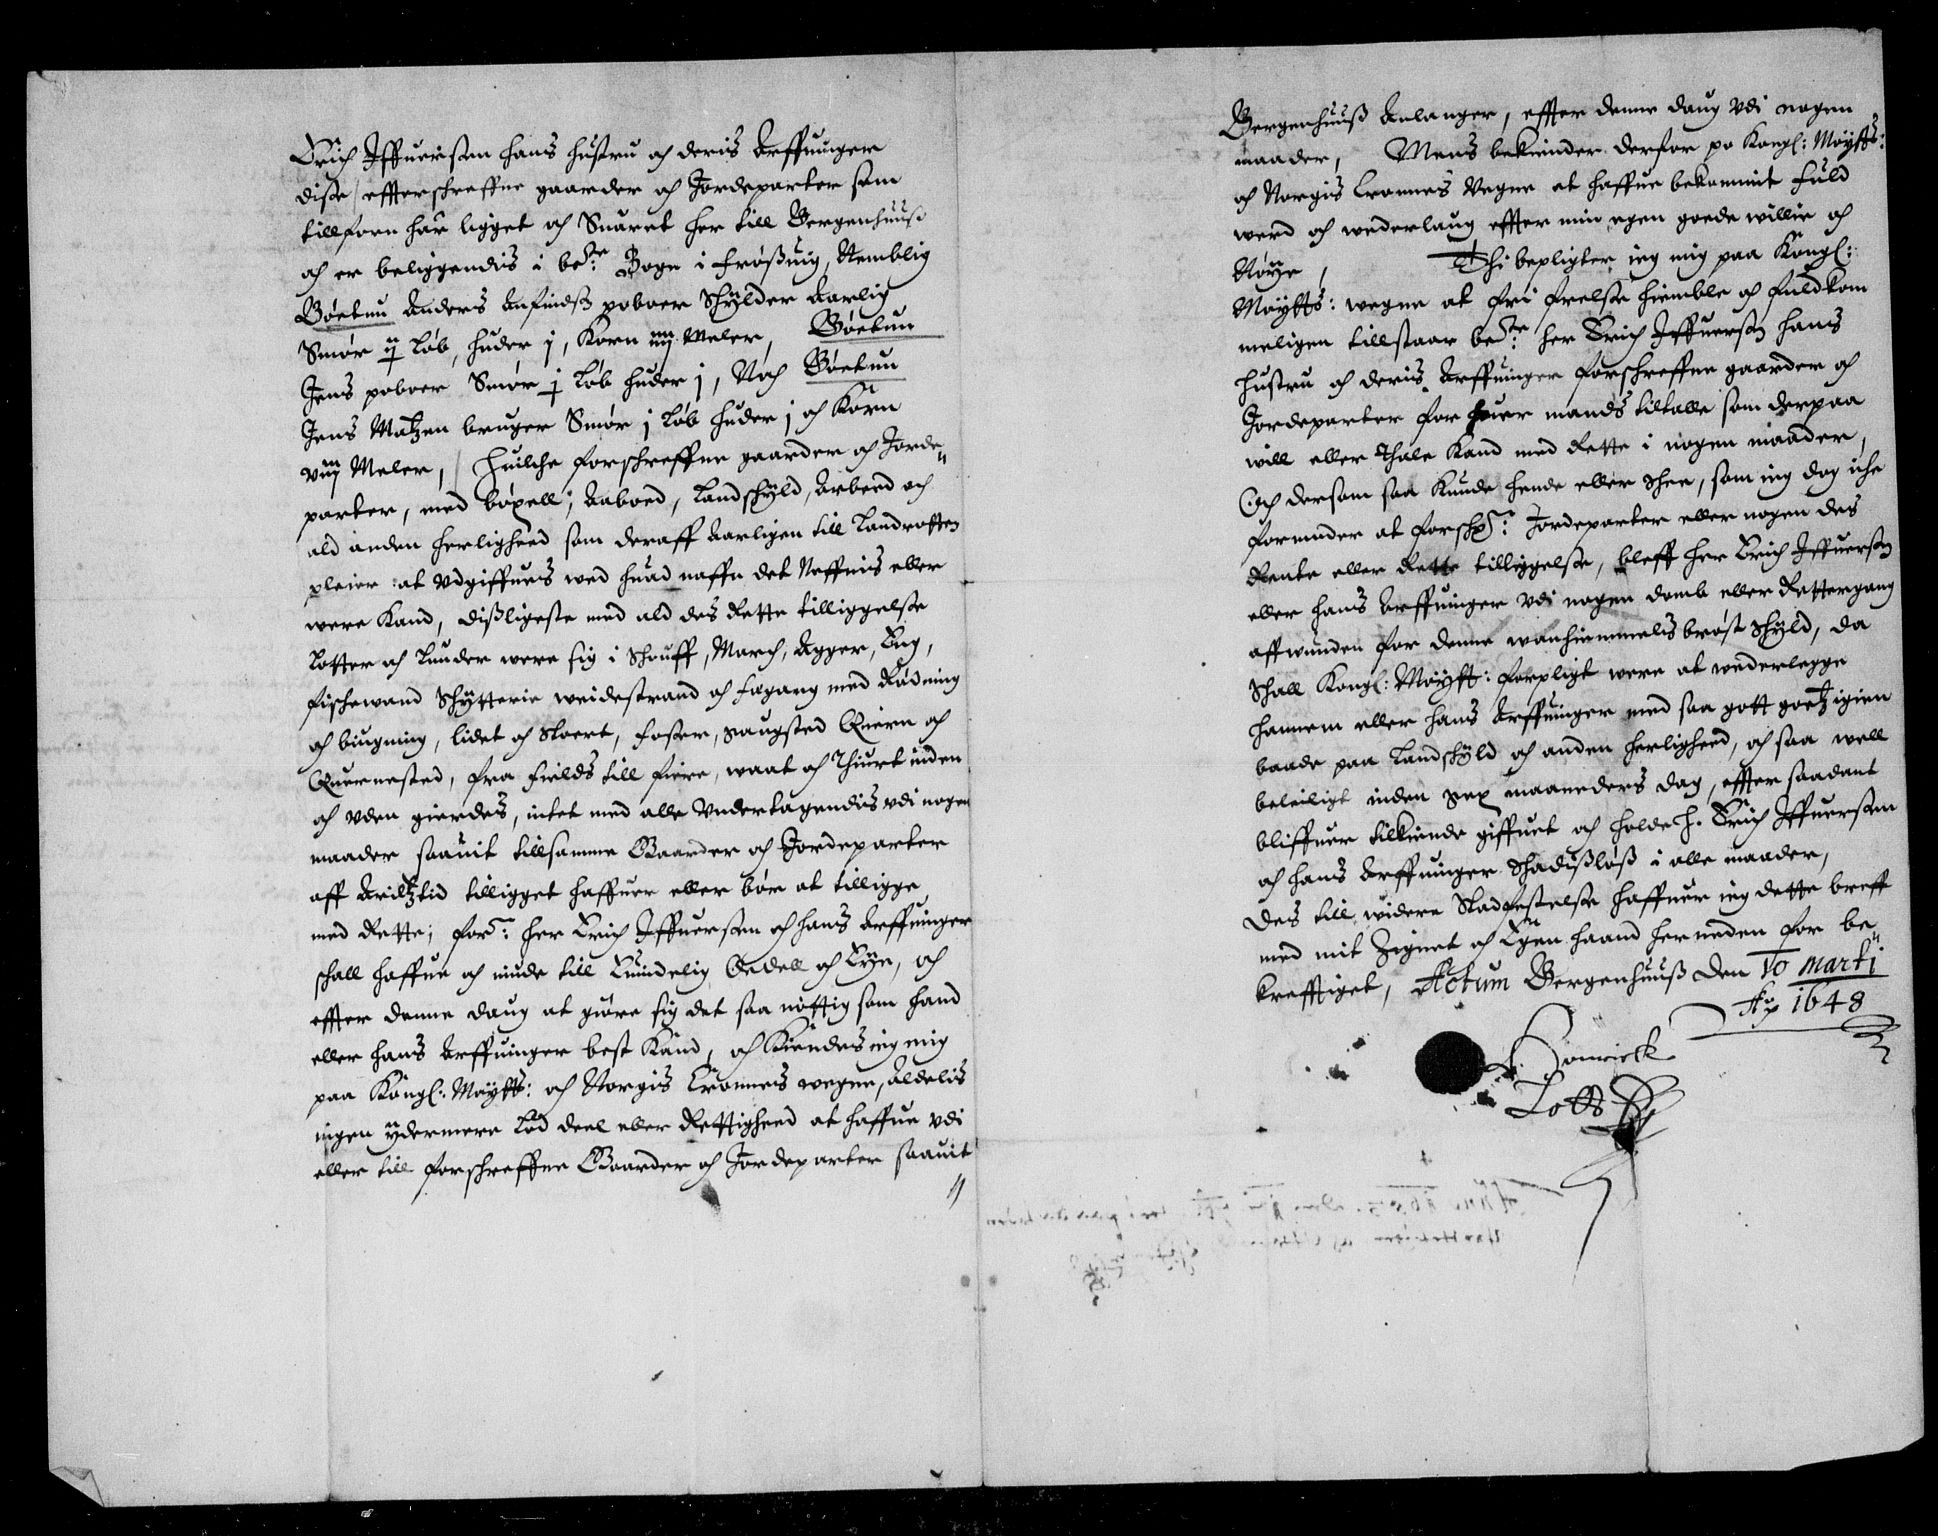 Erich Iffuersøn hans hustru och deris Arffuinger
disse effterschreffne gaarder och Jordeparter som
tillforn har ligget och Suaret her till Bergenhuuß
och er beliggendis i be:te Sogn i frøßuig, Nemblig
Bøetun Anders Anfindß poboer Schÿlder Aarlig
Smør ij Løb, huder j, Korn iiij Meler, Bøetun
Jens poboer Smør j Løb huder j, Noch Bøetun
Jens Matzen bruger Smør j Løb huder j och Korn
viij Meler, Huilche forschreffne gaarder och Jorde„
parter, med bøxell, Aaboed, Landschÿld, Arbeed och
ald anden herligheed som deraff Aarligen till Landrotten
pleier at udgiffues wed huad naffn det Neffnis eller
were Kand, dißligeste med ald des Rette tilliggelse
Lotter och Lunder were sig i Schouff, March, Agger, Eng,
fischewand Schÿtterie weidestrand och fægang med Rødning
och biugning, lidet och Stoert, foßer, saugsted Quern och
Quernested, fra fields till fiere, waat och Thiurt inden
och uden gierdes, intet med alle Undertagendis udi nogen
maader saauit tillsamme Gaarder och Jordeparter
aff Ariltztid tilligget haffuer eller bør at tilligge
med Rette, for:ne her Erich Iffuersøn och hans Arffuinger
schall haffue och niude till Euindelig Oedell och Eÿe, och
effter denne daug at giøre sig det saa nøttig som hand
eller hans Arffuinger best Kand, och Kiendes ieg mig
paa Kongl: Maÿtts: och Norgis Cronnes wegne, Aldelis
ingen ÿdermere Lod deel eller Rettigheed at haffue udi
eller till forschreffne Gaarder och Jordeparter saauit
Bergenhuuß Anlanger, effter denne daug udi nogen
maader, Mens bekiender derfor po Kongl: Maÿtts:
och Norgis Cronnes Vegne at haffue bekommit fuld
werd och wederlaug effter min egen goede willie och
Nøÿe, Thi bepligter ieg mig paa Kongl:
Maÿtts: wegne at fri frelse hiemble och fuldkom
meligen tillstaar be:te her Erich Iffuersøn hans
Hustru och deris Arffuinger forschreffne gaarder och
Jordeparter for huer mands tiltalle som derpaa
will eller Thale Kand med Rette i nogen maader,
Och dersom saa Kunde hende eller schee, som ieg dog iche
formoder at forsch:ne Jordeparter eller nogen des
Rente eller Rette tilliggelse, bleff her Erich Iffuersøn
eller hans Arffuinger udi nogen domb eller Rettergang
affwunden for denne wanhiemmelis brøst Schÿld, da
Schall Kongl: Maÿtt: forpligt were at wederlegge
hannem eller hans Arffuinger med saa gott goetz igien
baade paa Landschÿld och anden herligheed, och saa well
beleiligt inden sex maaneders dag, effter saadant
bliffuer tilkiende giffuet och holde H. Erich Iffuersøn
och hans Arffuinger Schadisløß i alle maader,
Des till widere Stadfestelse haffuer ieg dette breff
med mit Zignet och Egen haand herneden for be„
krefftiget, Actum Bergenhuuß den 10 marti
A:o 1648
Henrick